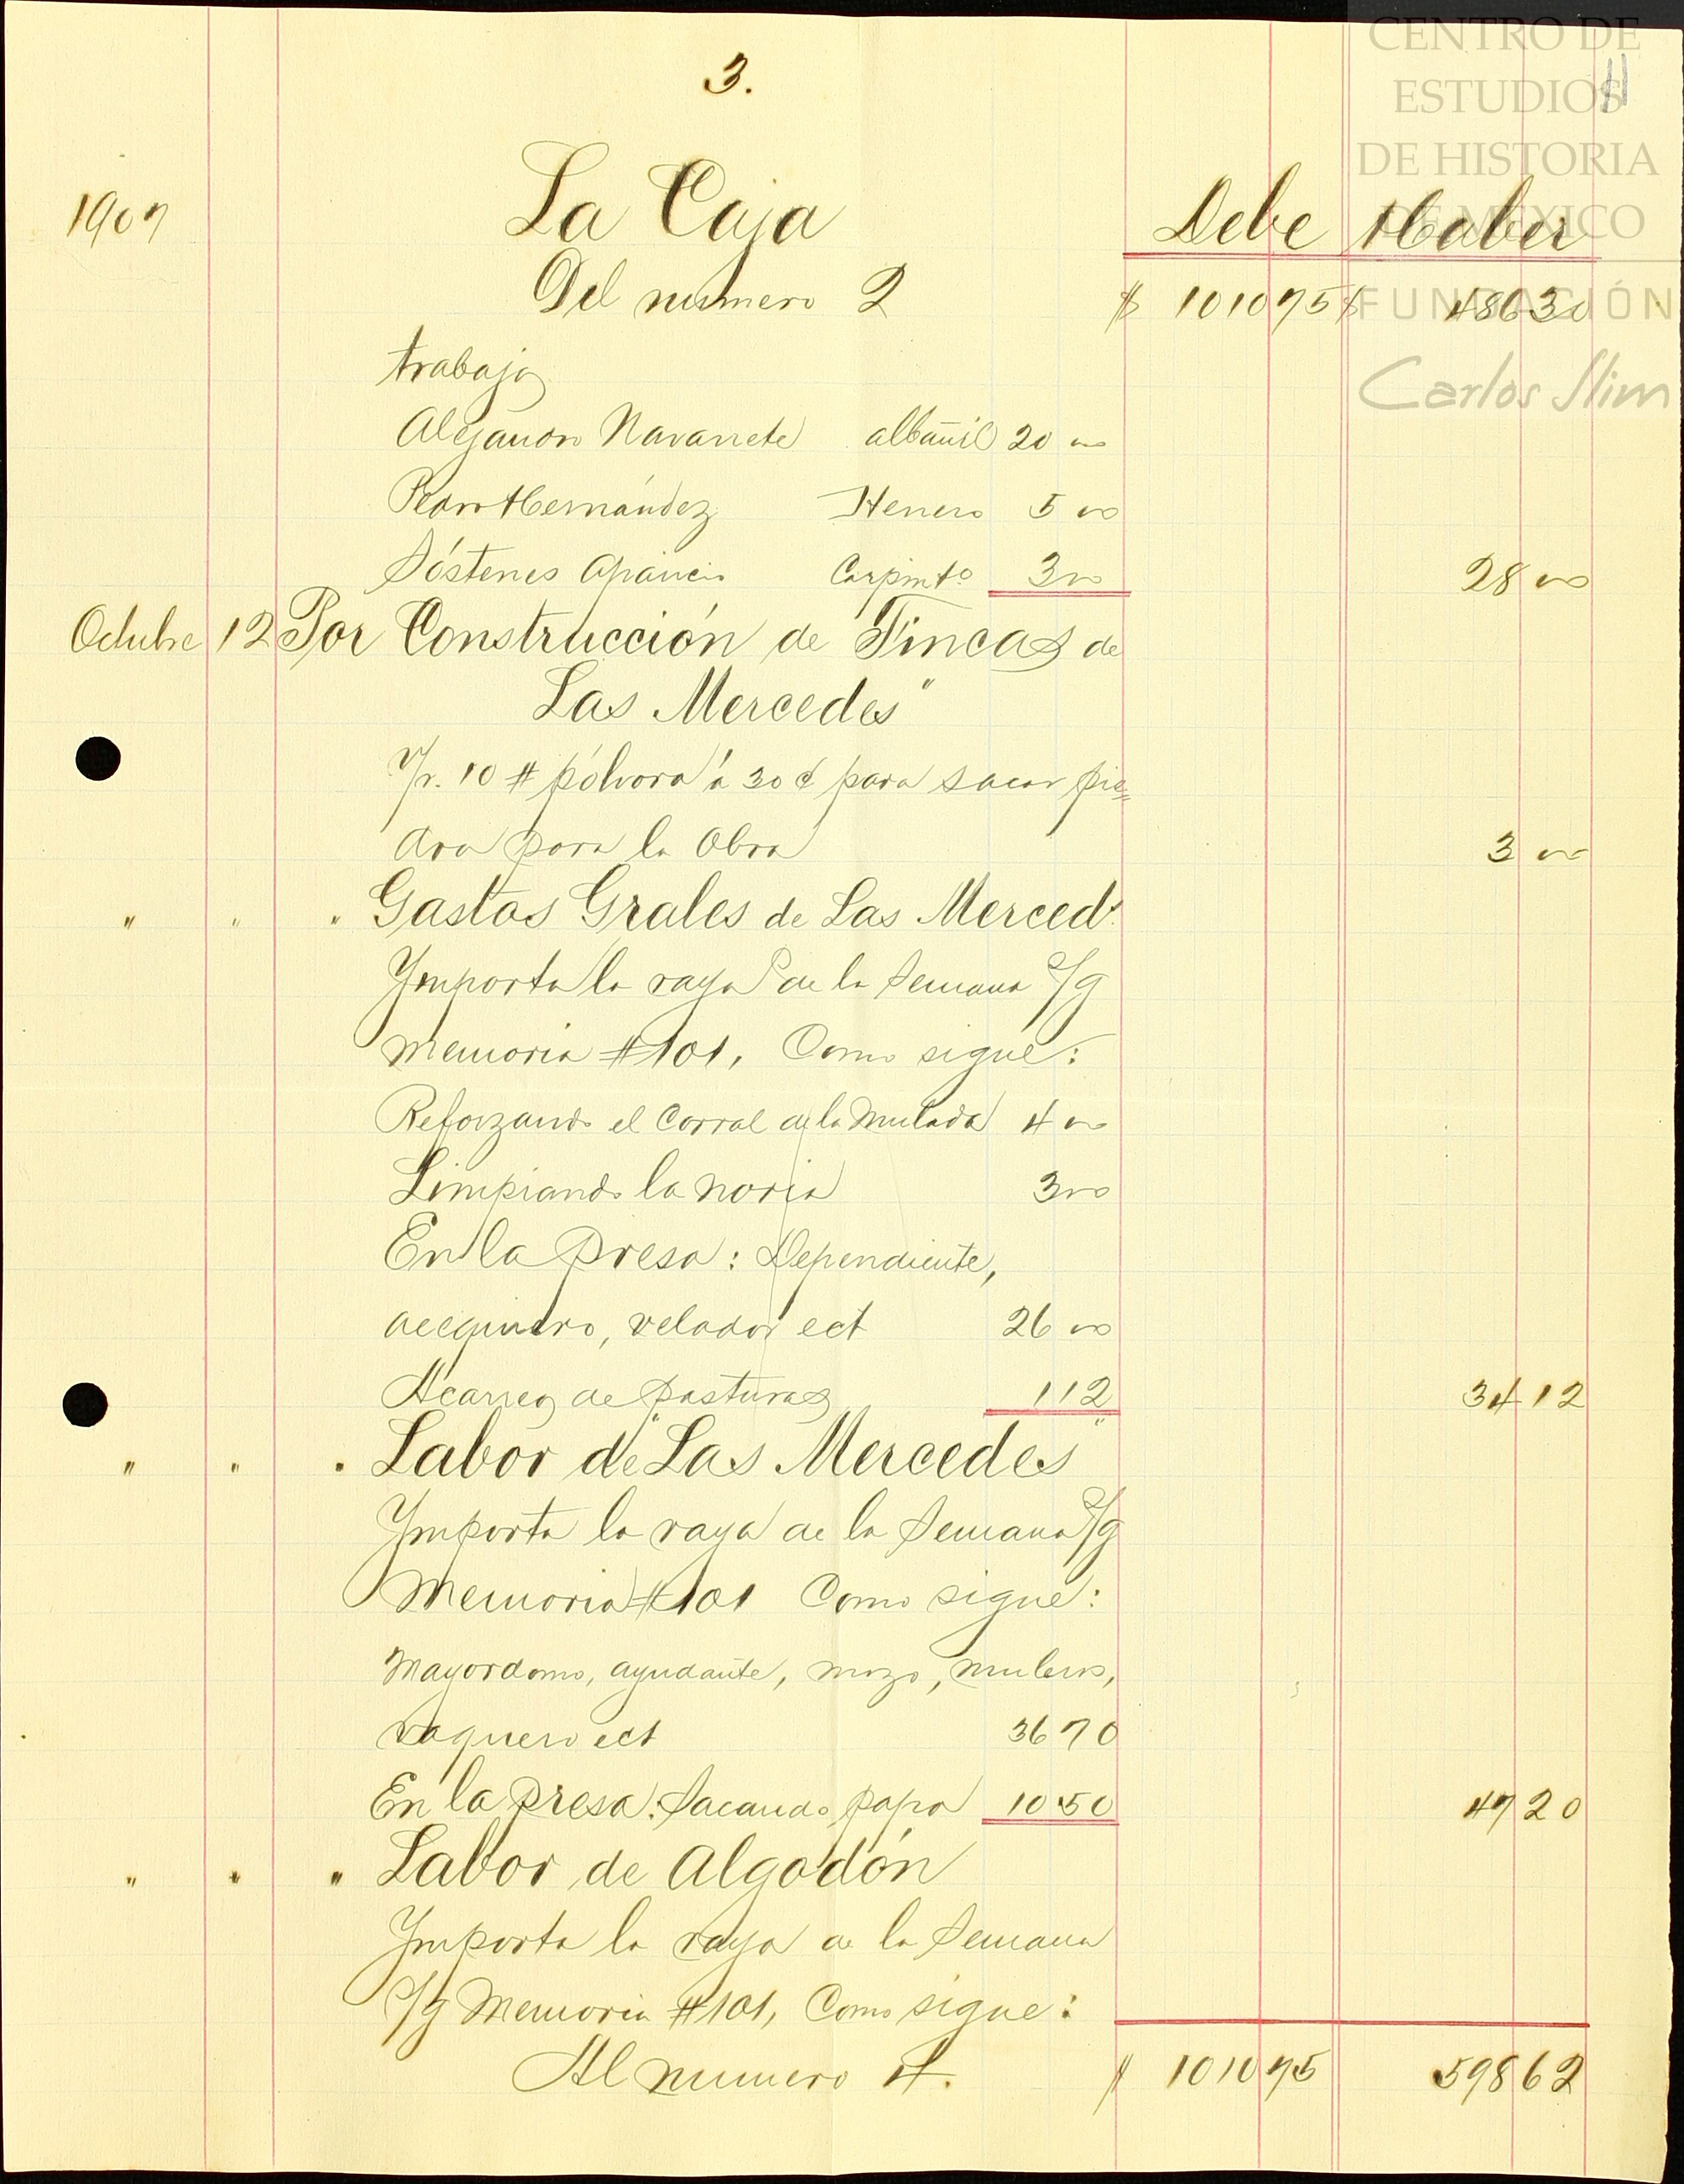 CENTRO DE
ESTUDIOS
DE HISTORIA
DE MÉXICO
FUNDACIÓN
Carlos Slim
11
3.
1907 La Caja Debe Haber
Del numero 2 $ 1010 75 $ 486 30
trabajo
Alejandro Navarrete albañil 20 00
Pedro Hernández Herrero 5 00
Sóstenes Aparicio Carpintº 3 00 28 00
Octubre 12 Por Construcción de Fincas de
Las Mercedes"
Vr. 10 # pólvora á 30 ¢ para sacar pie=
dra para la Obra 3 00
" " " Gastos Grales de Las Merced.
Ymporta la raya de la Semana s/g
memoria #101, Como sigue:
Reforzando el Corral de la Mulada 4 00
Limpiando la noria 3 00
En la Presa: Dependiente,
acequiero, velador ect 26 00
Acarreo de pasturas 1 12 34 12
" " " Labor de "Las Mercedes"
Ymporta la raya de la Semana s/g
Memoria #101 Como sigue:
Mayordomo, ayudante, mozo, muleros,
vaquero ect 36 70
En la Presa. Sacando papa 10.50 47 20
" " " Labor de Algodón
Ymporta la raya de la Semana
s/g Memoria #101, Como sigue:
Al numero 4. $ 1010 75 598 62